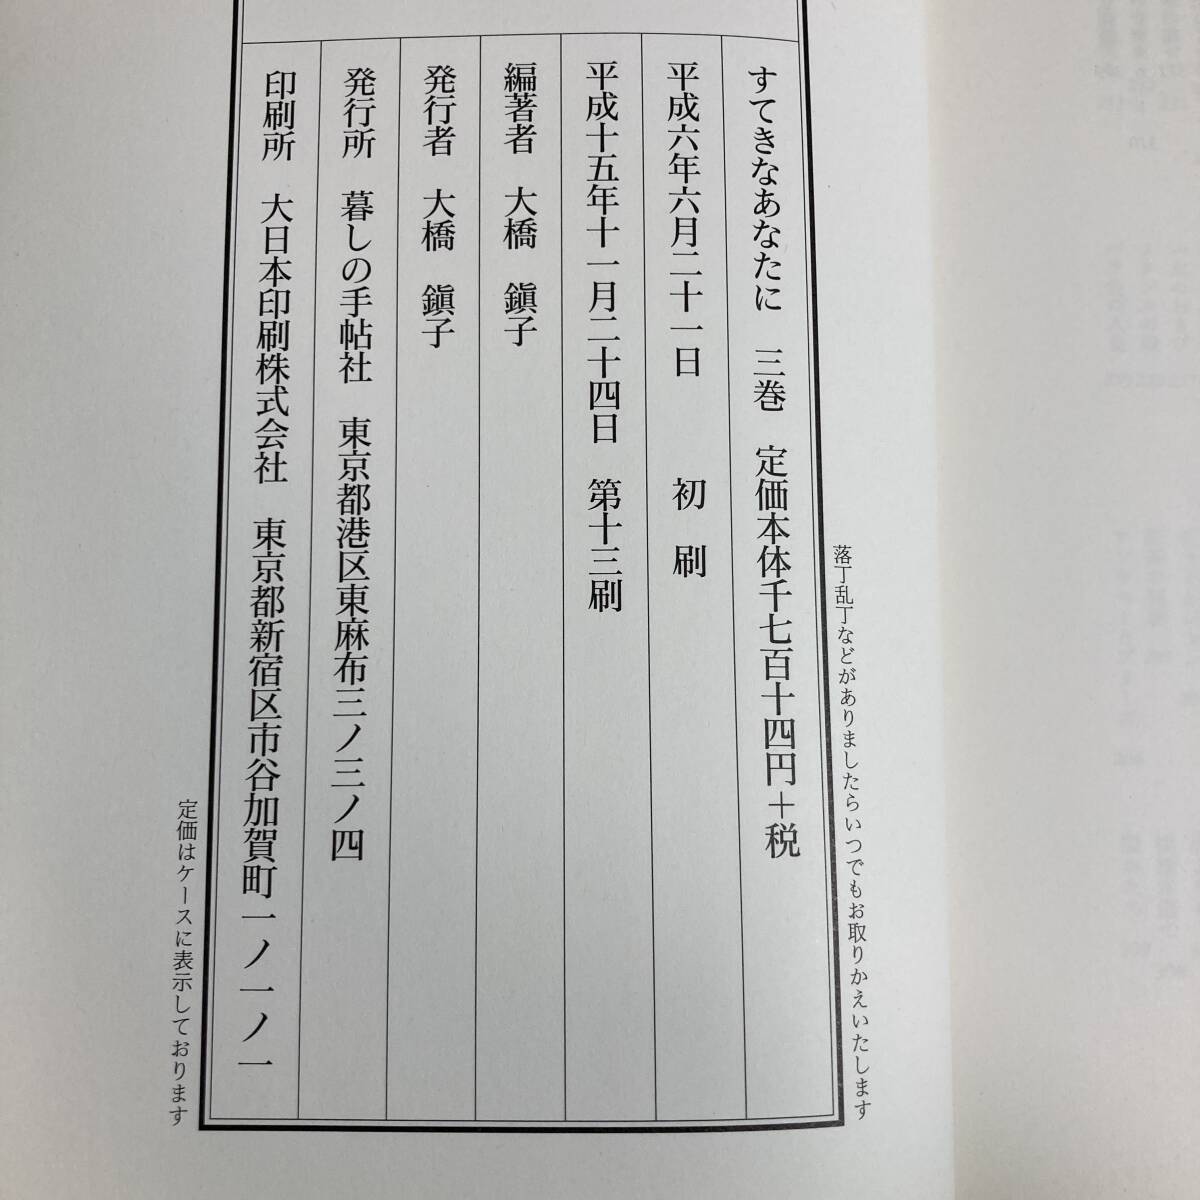 落丁乱丁などがありましたらいつでもお取りかえいたします
すてきなあなたに 三巻 定価本体千七百十四円＋税
平成六年六月二十一日 初刷
平成十五年十一月二十四日 第十三刷
編著者 大橋 鎭子
発行者 大橋 鎭子
発行所 暮しの手帖社 東京都港区東麻布三ノ三ノ四
印刷所 大日本印刷株式会社 東京都新宿区市谷加賀町一ノ一ノ一
定価はケースに表示しております